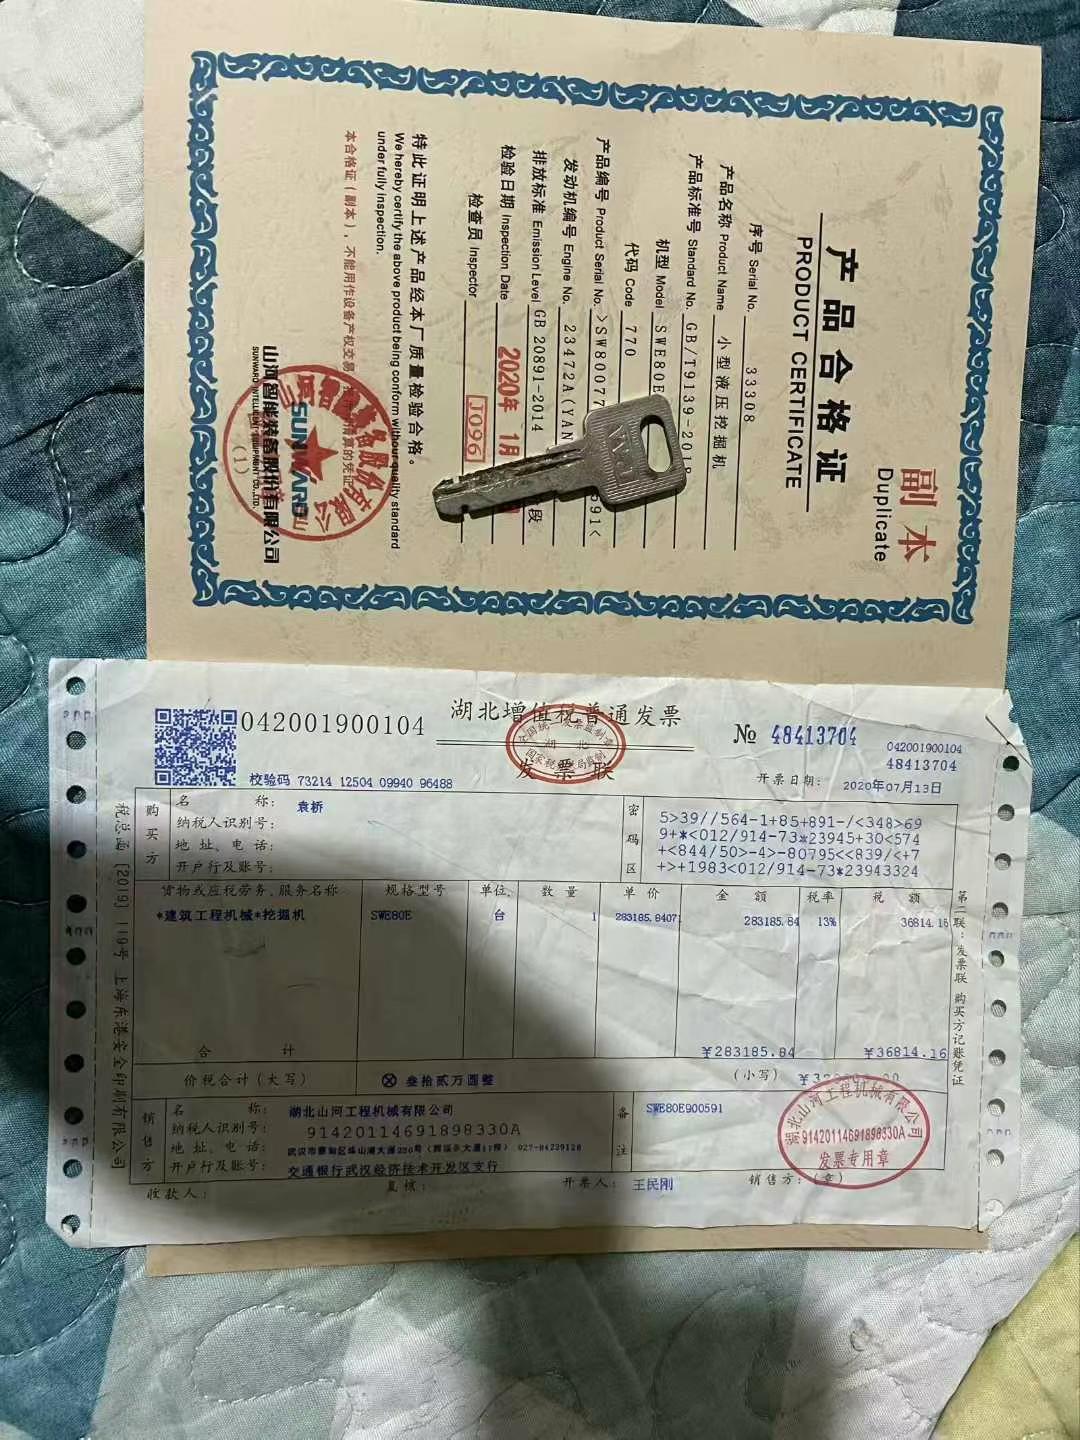 副本
Duplicate
产品合格证
PRODUCT CERTIFICATE
序号 Serial No. 33308
产品名称 Product Name 小型液压挖掘机
产品标准号 Standard No. GB/T9139-201
机型 Model SWE80E
代码 Code 770
产品编号 Product Serial No. >SW80077 591<
发动机编号 Engine No. 23472A(YAN
排放标准 Emission Level GB 20891-2014 段
检验日期 Inspection Date 2020年 1月
检查员 Inspector J096
特此证明上述产品经本厂质量检验合格。
We hereby certify the above product being conform without quality standard
under fully inspection.
本合格证(副本),不能用作设备产权交易
SUNWARD
山河智能装备股份有限公司
SUNWARD INTELLIGENT EQUIPMENT CO.,LTD.
(1)
042001900104
湖北增值税普通发票
发票联
№ 48413704
042001900104
48413704
校验码 73214 12504 09940 96488
开票日期: 2020年07月13日
购买方
名 称: 袁桥
纳税人识别号:
地址、电话:
开户行及账号:
密码区
5>39//564-1+85+891-/<348>69
9+*<012/914-73*23945+30<574
+<844/50>-4>-80795<<839/<+7
+>+1983<012/914-73*23943324
货物或应税劳务、服务名称 规格型号 单位 数量 单价 金额 税率 税额
*建筑工程机械*挖掘机 SWE80E 台 1 283185.8407 283185.84 13% 36814.16
合计 ¥283185.84 ¥36814.16
价税合计(大写) ⊗ 叁拾贰万圆整 (小写)
销售方
名 称: 湖北山河工程机械有限公司
纳税人识别号: 91420114691898330A
地址、电话: 027-84229128
开户行及账号: 交通银行武汉经济技术开发区支行
备注
SWE80E900591
收款人: 复核: 开票人: 王民刚 销售方:(章)
湖北山河工程机械有限公司
91420114691898330A
发票专用章
税总函[2019]119号 上海东港安全印刷有限公司
第二联:发票联 购买方记账凭证